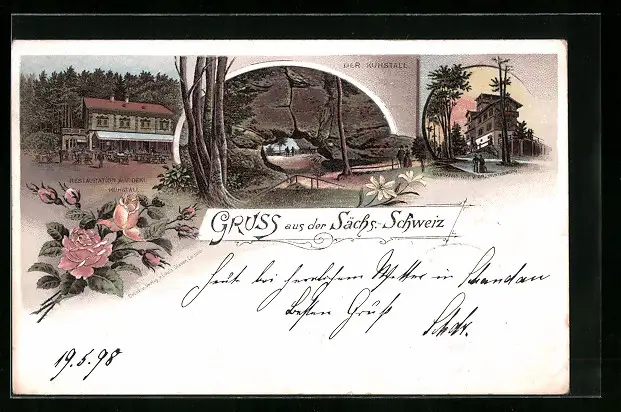 DER KUHSTALL
RESTAURATION AUF DEM
KUHSTALL
GRUSS aus der Sächs. Schweiz
Heute bei herrlichem Wetter in Schandau
besten Gruß
19.5.98